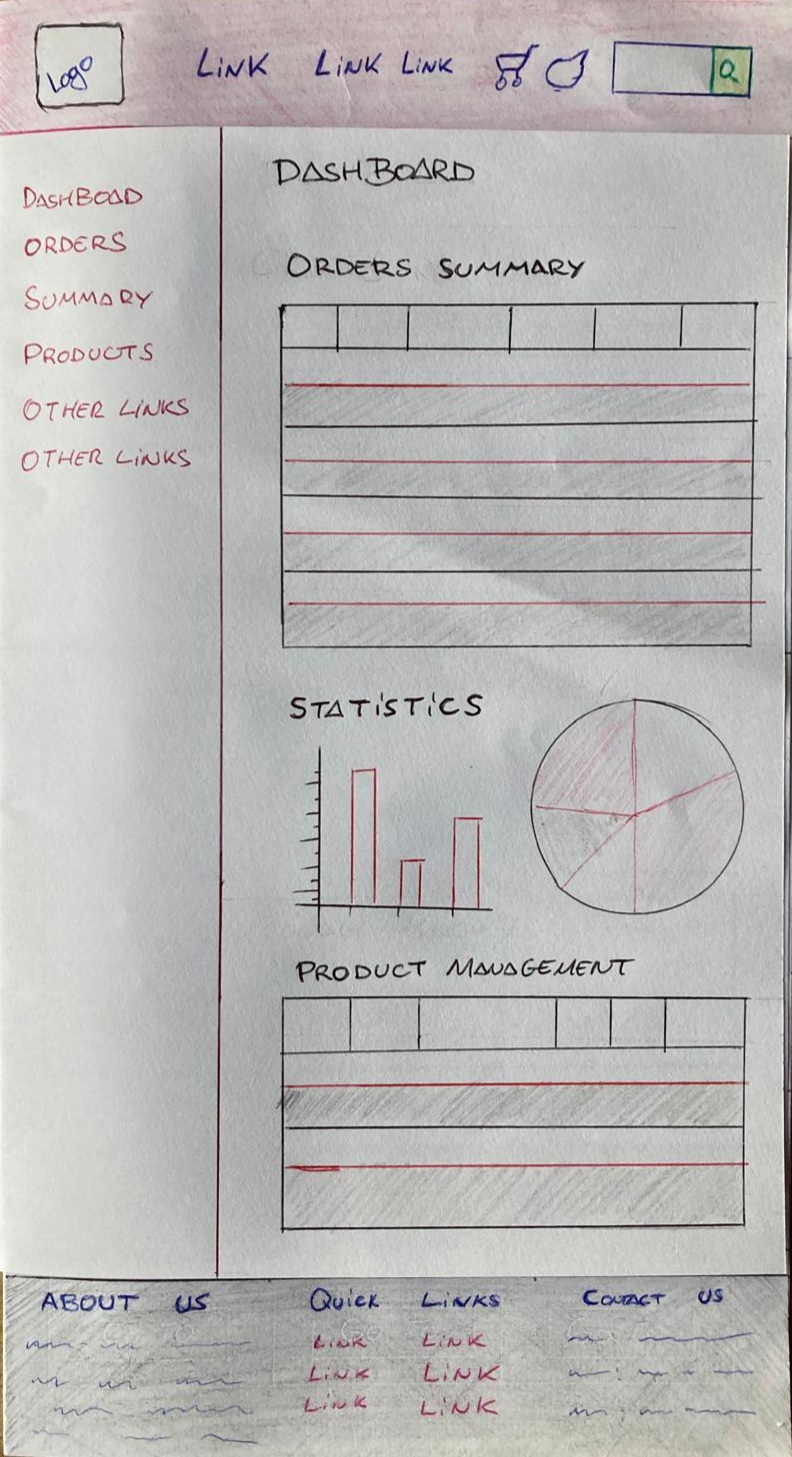 Logo
LiNK LiNK LiNK
DASHBOAD
ORDERS
SUMMARY
PRODUCTS
OTHER LiNKS
OTHER LiNKS
DASHBOARD
ORDERS SUMMARY
STATiSTiCS
PRODUCT MANAGEMENT
ABOUT US
Quick LiNKS
LiNK LiNK
LiNK LiNK
LiNK LiNK
CONTACT US